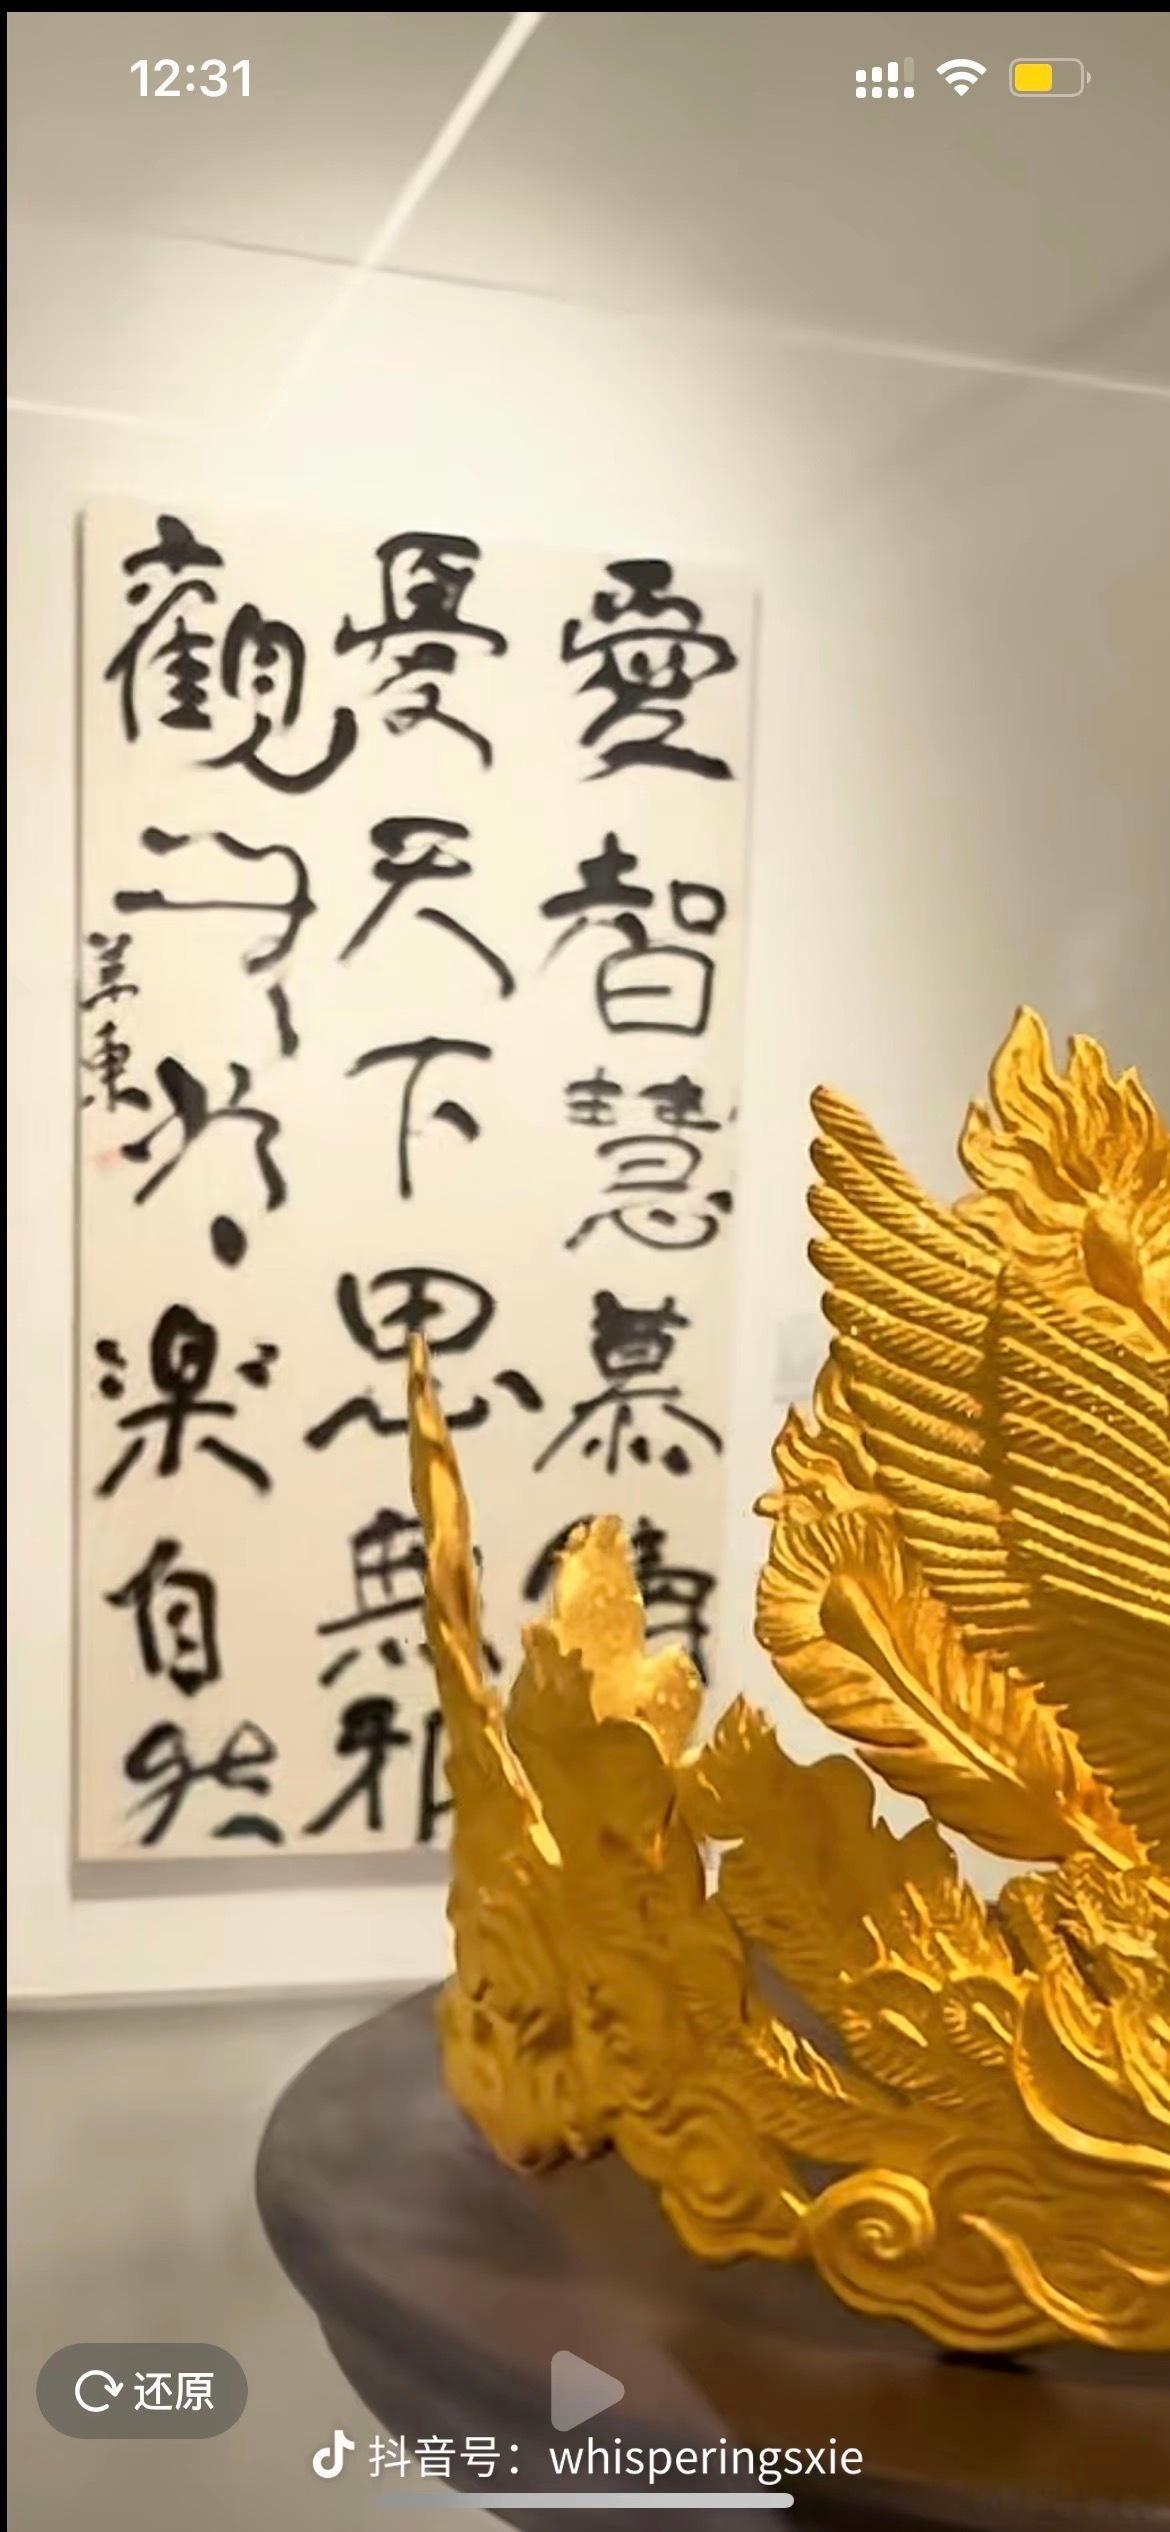 12:31
愛智慧慕
憂天下思無邪
觀
樂自然
还原
抖音号：whisperingsxie